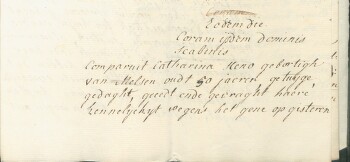 Eodem die
Coram ijsdem dominis
Scabinis
Comparuit Catharina Heno gebortigh
van Melsen oudt 50 jaeren getuyge
gedaght, geeedt ende gevraght haere
kennelyckyt wegens het gene op gisteren